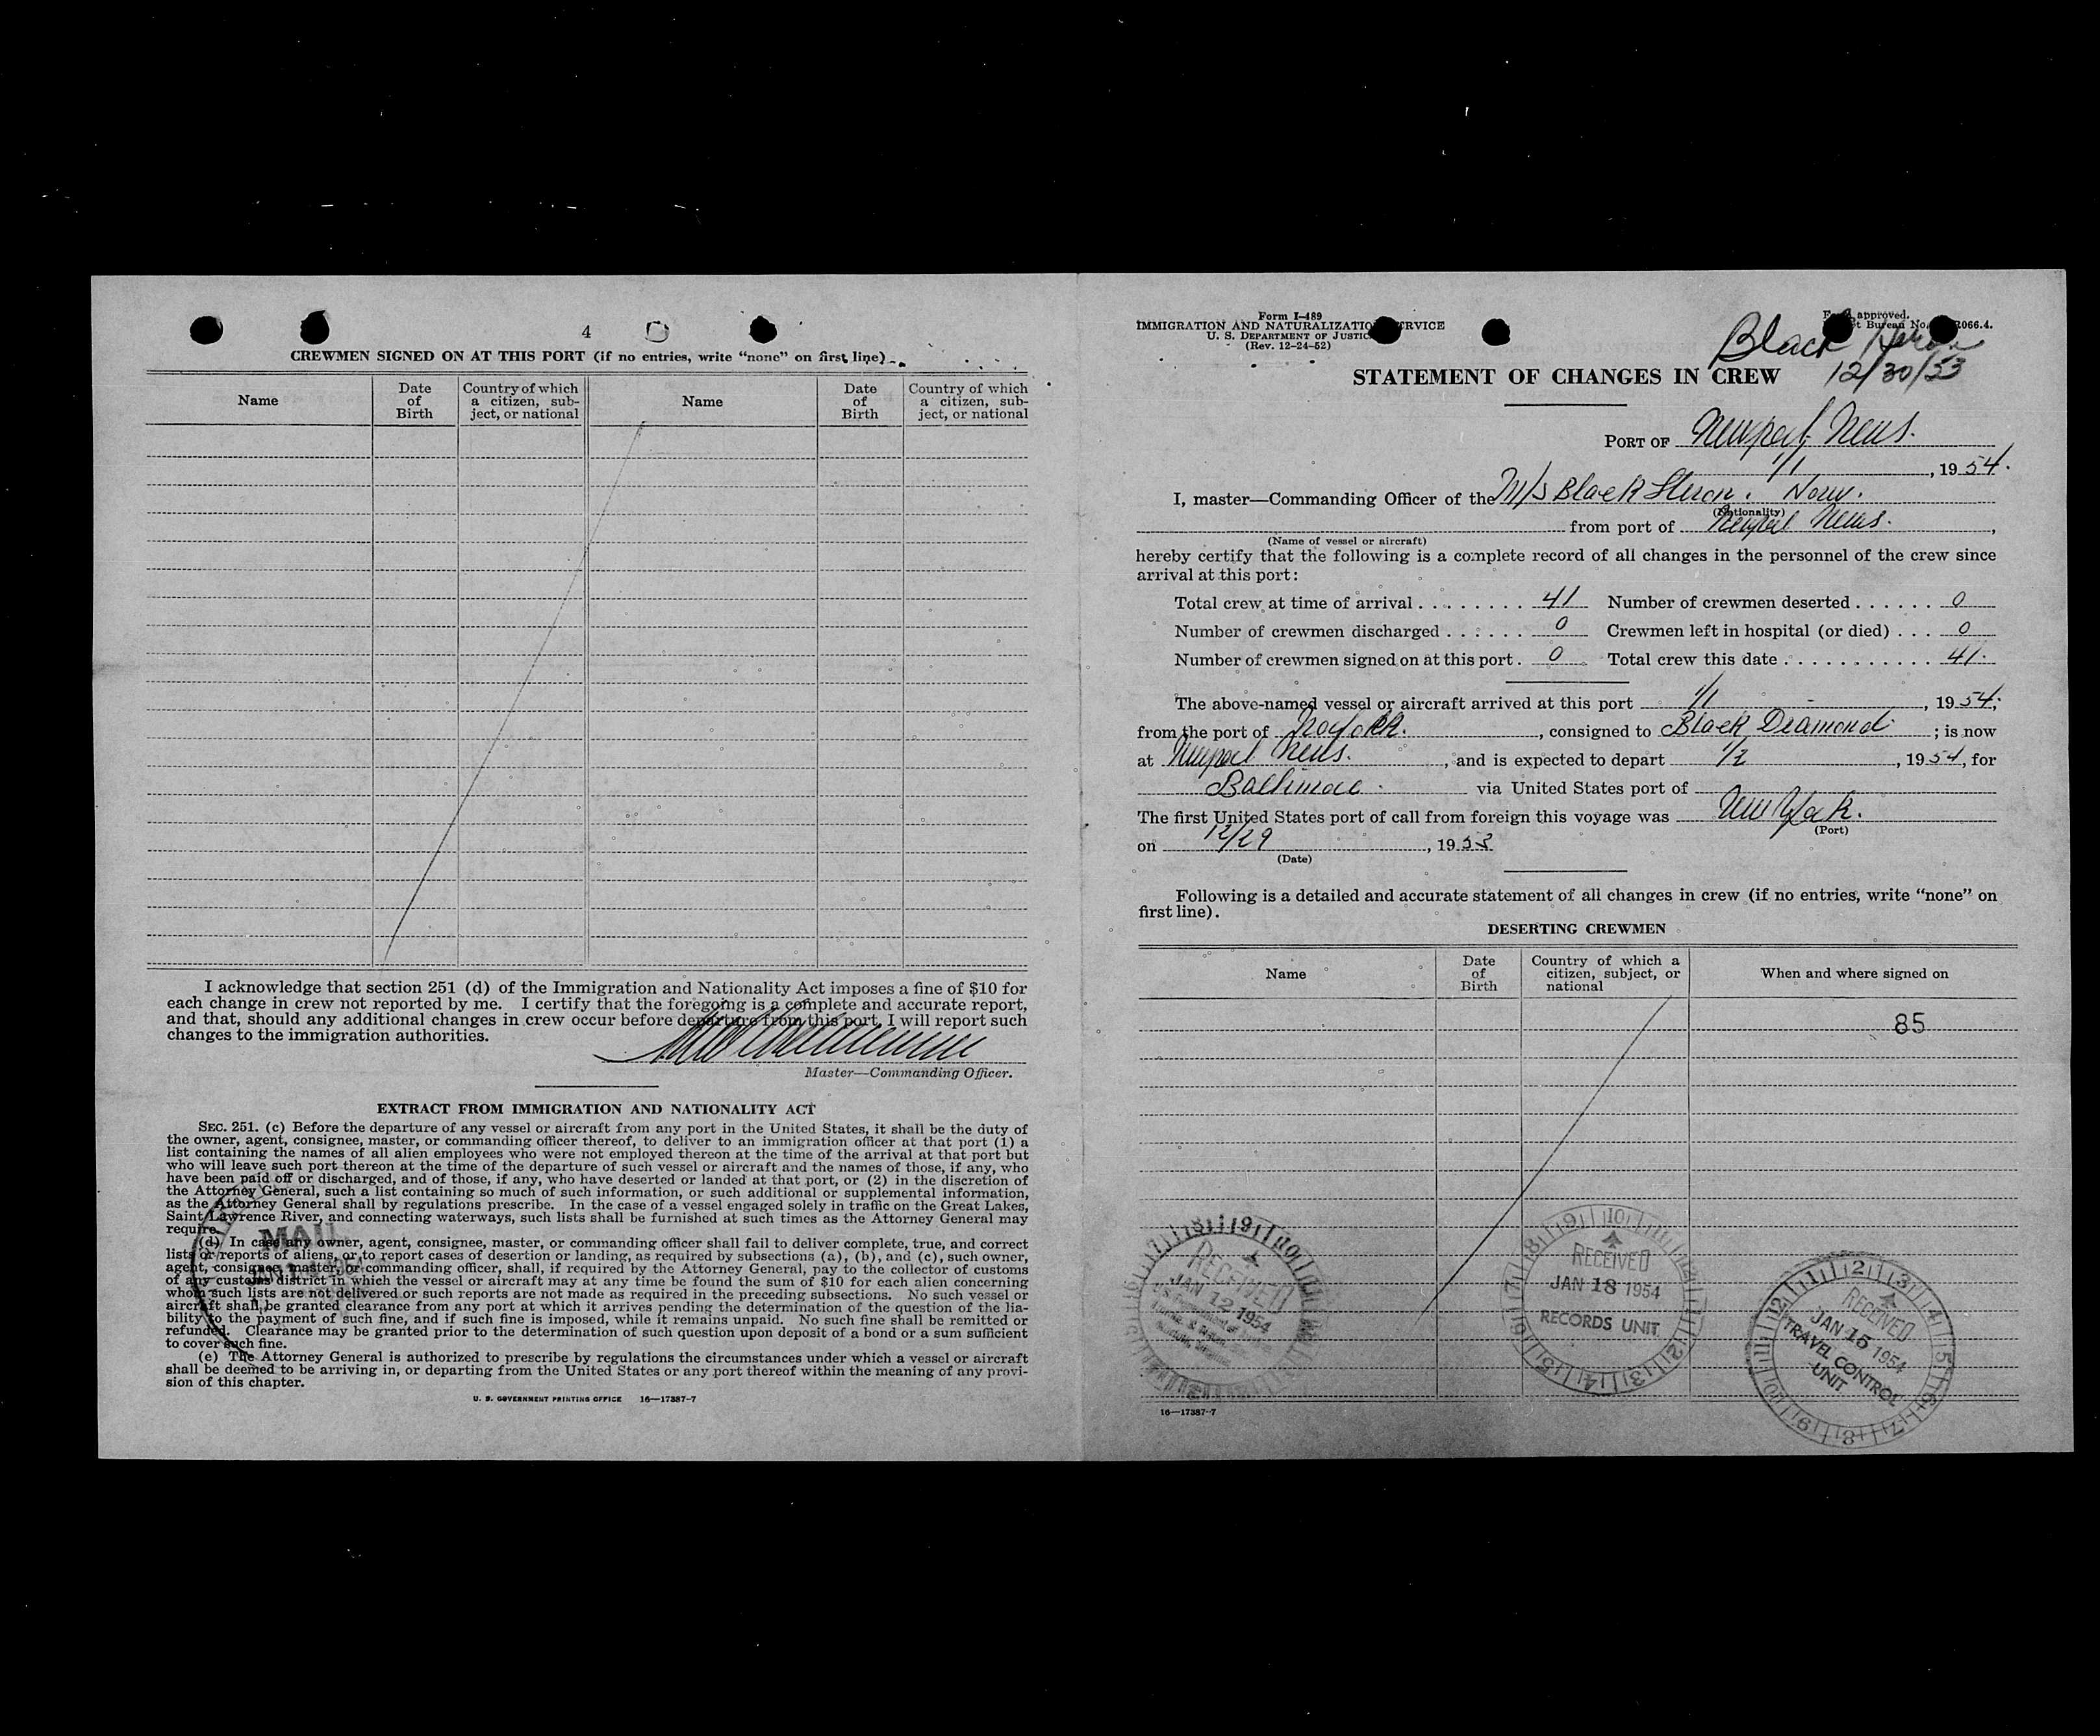 4
CREWMEN SIGNED ON AT THIS PORT (if no entries, write "none" on first line)
Name
Date of Birth
Country of which a citizen, subject, or national
Name
Date of Birth
Country of which a citizen, subject, or national
I acknowledge that section 251 (d) of the Immigration and Nationality Act imposes a fine of $10 for
each change in crew not reported by me. I certify that the foregoing is a complete and accurate report,
and that, should any additional changes in crew occur before departure from this port, I will report such
changes to the immigration authorities.
Master—Commanding Officer.
EXTRACT FROM IMMIGRATION AND NATIONALITY ACT
SEC. 251. (c) Before the departure of any vessel or aircraft from any port in the United States, it shall be the duty of
the owner, agent, consignee, master, or commanding officer thereof, to deliver to an immigration officer at that port (1) a
list containing the names of all alien employees who were not employed thereon at the time of the arrival at that port but
who will leave such port thereon at the time of the departure of such vessel or aircraft and the names of those, if any, who
have been paid off or discharged, and of those, if any, who have deserted or landed at that port, or (2) in the discretion of
the Attorney General, such a list containing so much of such information, or such additional or supplemental information,
as the Attorney General shall by regulations prescribe. In the case of a vessel engaged solely in traffic on the Great Lakes,
Saint Lawrence River, and connecting waterways, such lists shall be furnished at such times as the Attorney General may
require.
(d) In case any owner, agent, consignee, master, or commanding officer shall fail to deliver complete, true, and correct
lists or reports of aliens, or to report cases of desertion or landing, as required by subsections (a), (b), and (c), such owner,
agent, consignee, master, or commanding officer, shall, if required by the Attorney General, pay to the collector of customs
of any customs district in which the vessel or aircraft may at any time be found the sum of $10 for each alien concerning
whom such lists are not delivered or such reports are not made as required in the preceding subsections. No such vessel or
aircraft shall be granted clearance from any port at which it arrives pending the determination of the question of the lia-
bility to the payment of such fine, and if such fine is imposed, while it remains unpaid. No such fine shall be remitted or
refunded. Clearance may be granted prior to the determination of such question upon deposit of a bond or a sum sufficient
to cover such fine.
(e) The Attorney General is authorized to prescribe by regulations the circumstances under which a vessel or aircraft
shall be deemed to be arriving in, or departing from the United States or any port thereof within the meaning of any provi-
sion of this chapter.
MAIL
U. S. GOVERNMENT PRINTING OFFICE 16—17387-7
Form I-489
IMMIGRATION AND NATURALIZATION SERVICE
U. S. DEPARTMENT OF JUSTICE
(Rev. 12-24-52)
approved.
Bureau No. 066.4.
Black Heron
12/30/53
STATEMENT OF CHANGES IN CREW
PORT OF Newport News.
1/1, 1954.
I, master—Commanding Officer of the M/S Black Heron. Norw.
(Nationality)
from port of Newport News.,
(Name of vessel or aircraft)
hereby certify that the following is a complete record of all changes in the personnel of the crew since
arrival at this port:
Total crew at time of arrival 41 Number of crewmen deserted 0
Number of crewmen discharged 0 Crewmen left in hospital (or died) 0
Number of crewmen signed on at this port. 0 Total crew this date 41.
The above-named vessel or aircraft arrived at this port 1/1, 1954;
from the port of Norfolk., consigned to Black Diamond; is now
at Newport News., and is expected to depart 1/2, 1954, for
Baltimore. via United States port of
The first United States port of call from foreign this voyage was New York.
(Port)
on 12/29, 1953
(Date)
Following is a detailed and accurate statement of all changes in crew (if no entries, write "none" on
first line).
DESERTING CREWMEN
Name
Date of Birth
Country of which a citizen, subject, or national
When and where signed on
85
RECEIVED
JAN 12 1954
RECEIVED
JAN 18 1954
RECORDS UNIT
RECEIVED
JAN 15 1954
TRAVEL CONTROL
UNIT
16—17387-7